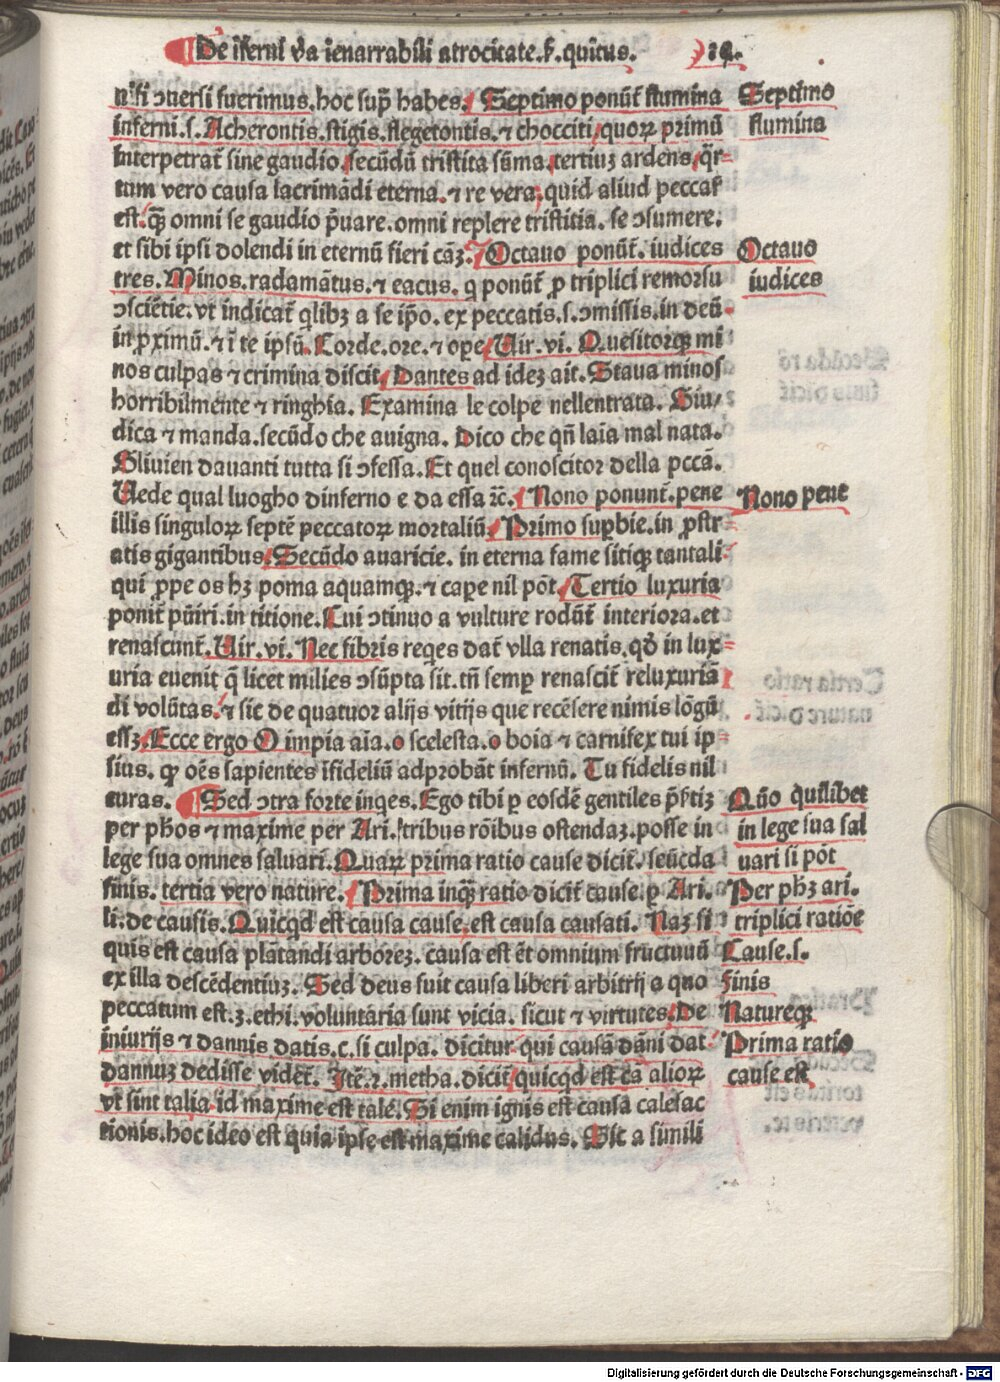 De īferni v̄a īenarrabili atrocitate. ẜ. quītus. 19.
nisi ↄuersi fuerimus. hoc sup̄ habes. Septimo ponūt flumina
inferni. s. Acherontis. stigis. flegetontis. ⁊ chocciti quoꝝ primū
interpretat̄ sine gaudio. secūdū tristita sūma. tertiuꝫ ardens, q̄r-
tum vero causa lacrimādi eterna. ⁊ re vera, quid aliud
est. ꝙ̄ omni se gaudio p̄uare. omni replere tristitia. se ↄsumere.
et sibi ipsi dolendi in eternū fieri cāꝫ. Octauo ponūt̄. iudices
tres. Minos. radamātus. ⁊ eacus. q ponūt̄ ꝓ triplici remorsu
ↄsciētie. vt indicat̄ qlibꝫ a se ip̄o. ex peccatis. s. ↄmissis. in deū.
in ꝓximū. ⁊ ī te ipsū. Corde. ore. ⁊ ope. Uir. vi. Quesitorqꝫ mi
nos culpas ⁊ crimina discit. Dantes ad ideꝫ ait. Staua minos
horribilmente ⁊ ringhia. Examina le colpe nellentrata. Giu/
dica ⁊ manda. secūdo che auigna. Dico che qn̄ laia mal nata.
Gliuien dauanti tutta si ↄfessa. Et quel conoscitor della pccā.
Uede qual luogho dinferno e da essa ⁊c̄. Nono ponunt̄. pene
illis singuloꝝ septē peccatoꝝ mortaliū. Primo sup̱bie. in ꝓstr-
atis gigantibus. Secūdo auaricie. in eterna fame sitiqꝫ tantali.
qui ꝓpe os hꝫ poma aquamqꝫ. ⁊ cape nil pōt. Tertio luxuria
ponit̄ pūiri. in titione. Cui ↄtinuo a vulture rodūt̄ interiora. et
renascunt̄. Uir. vi. Nec fibris reqes dat̄ vlla renatis. qđ in lux-
uria euenit q̄ licet milies ↄsūpta sit. tn̄ semp renascit̄ reluxuriā
di volūtas. ⁊ sic de quatuor alijs vitijs que recēsere nimis lōgū
essꝫ. Ecce ergo O impia aīa. o scelesta. o boia ⁊ carnifex tui ip-
sius. qꝫ oēs sapientes īfideliū adprobāt infernū. Tu fidelis nil
curas. Sed ↄtra forte inqes. Ego tibi p eosdē gentiles p̄ſtiꝫ
per phos ⁊ maxime per Ari. tribus rōibus ostendaꝫ. posse in
lege sua omnes saluari. Quaꝝ prima ratio cause dicit̄. seūcda
finis. tertia vero nature. Prima inqꝫ ratio dicit̄ cause. ꝑ Ari.
li. de causis. Quicqd est causa cause, est causa causati. Naꝫ si
quis est causa plātandi arboreꝫ. causa est ēt omnium fructuuū
ex illa descēdentiuꝫ. Sed deus fuit causa liberi arbitrij a quo
peccatum est. 3. ethi. voluntaria sunt vicia. sicut ⁊ virtutes. De
iniurijs ⁊ dannis datis. c. si culpa. dicitur qui causā dāni dat
dannuꝫ dedisse videt̄. Itē. 2. metha. dicit̄ quicqd est cā alioꝝ
vt sint talia id maxime est tale. Si enim ignis est causa calefac
tionis. hoc ideo est quia ipse est maxime calidus. Sic a simili
Septimo
flumina
Octauo
iudices
Nono pene
Quō quilibet
in lege sua sal
uari si pōt
Per phꝫ ari.
triplici ratiōe
Cause. s.
Finis
Natureqꝫ
Prima ratio
cause est
Digitalisierung gefördert durch die Deutsche Forschungsgemeinschaft - DFG